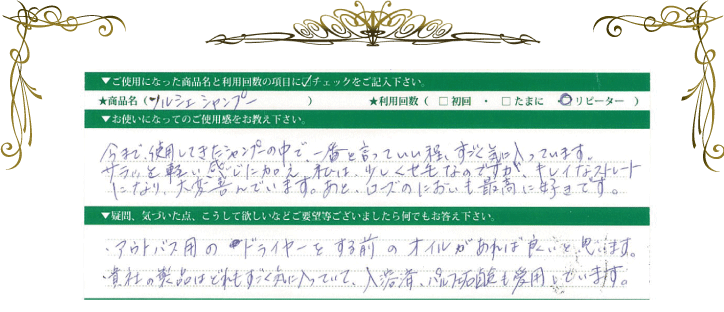 ▼ご使用になった商品名と利用回数の項目に☑チェックをご記入下さい。
★商品名（ソルシエシャンプー） ★利用回数（ □初回 ・ □たまに ☑リピーター ）
▼お使いになってのご使用感をお教え下さい。
今まで使用してきたシャンプーの中で一番と言っていい程、すごく気に入っています。
サラッと軽い感じに加え、私は、少しくせ毛なのですが、キレイなストレート
になり、大変喜んでいます。あと、ローズのにおいも最高に好きです。
▼疑問、気づいた点、こうして欲しいなどご要望等ございましたら何でもお答え下さい。
・アウトバス用のドライヤーをする前のオイルがあれば良いと思います。
・貴社の製品はどれもすごく気に入っていて、入浴済、パルフェ石鹸も愛用しています。